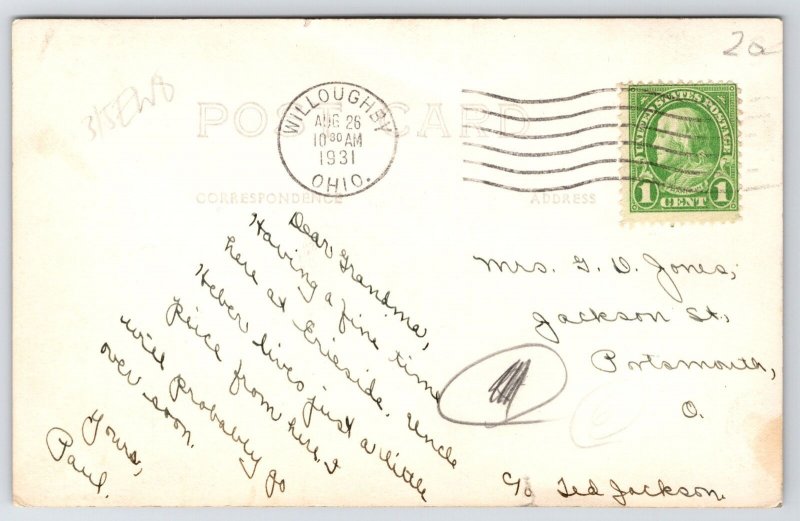 2a
315EW8
POST CARD
WILLOUGHBY
AUG 26
10 30 AM
1931
OHIO.
UNITED STATES POSTAGE
1 CENT 1
CORRESPONDENCE
ADDRESS
Dear Grandma,
Having a fine time
here at Erieside. Uncle
Heber lives just a little
peice from here. I
will probably go
over soon.
Yours,
Paul.
Mrs. G. D. Jones,
Jackson St.,
Portsmouth,
O.
c/o Ted Jackson.